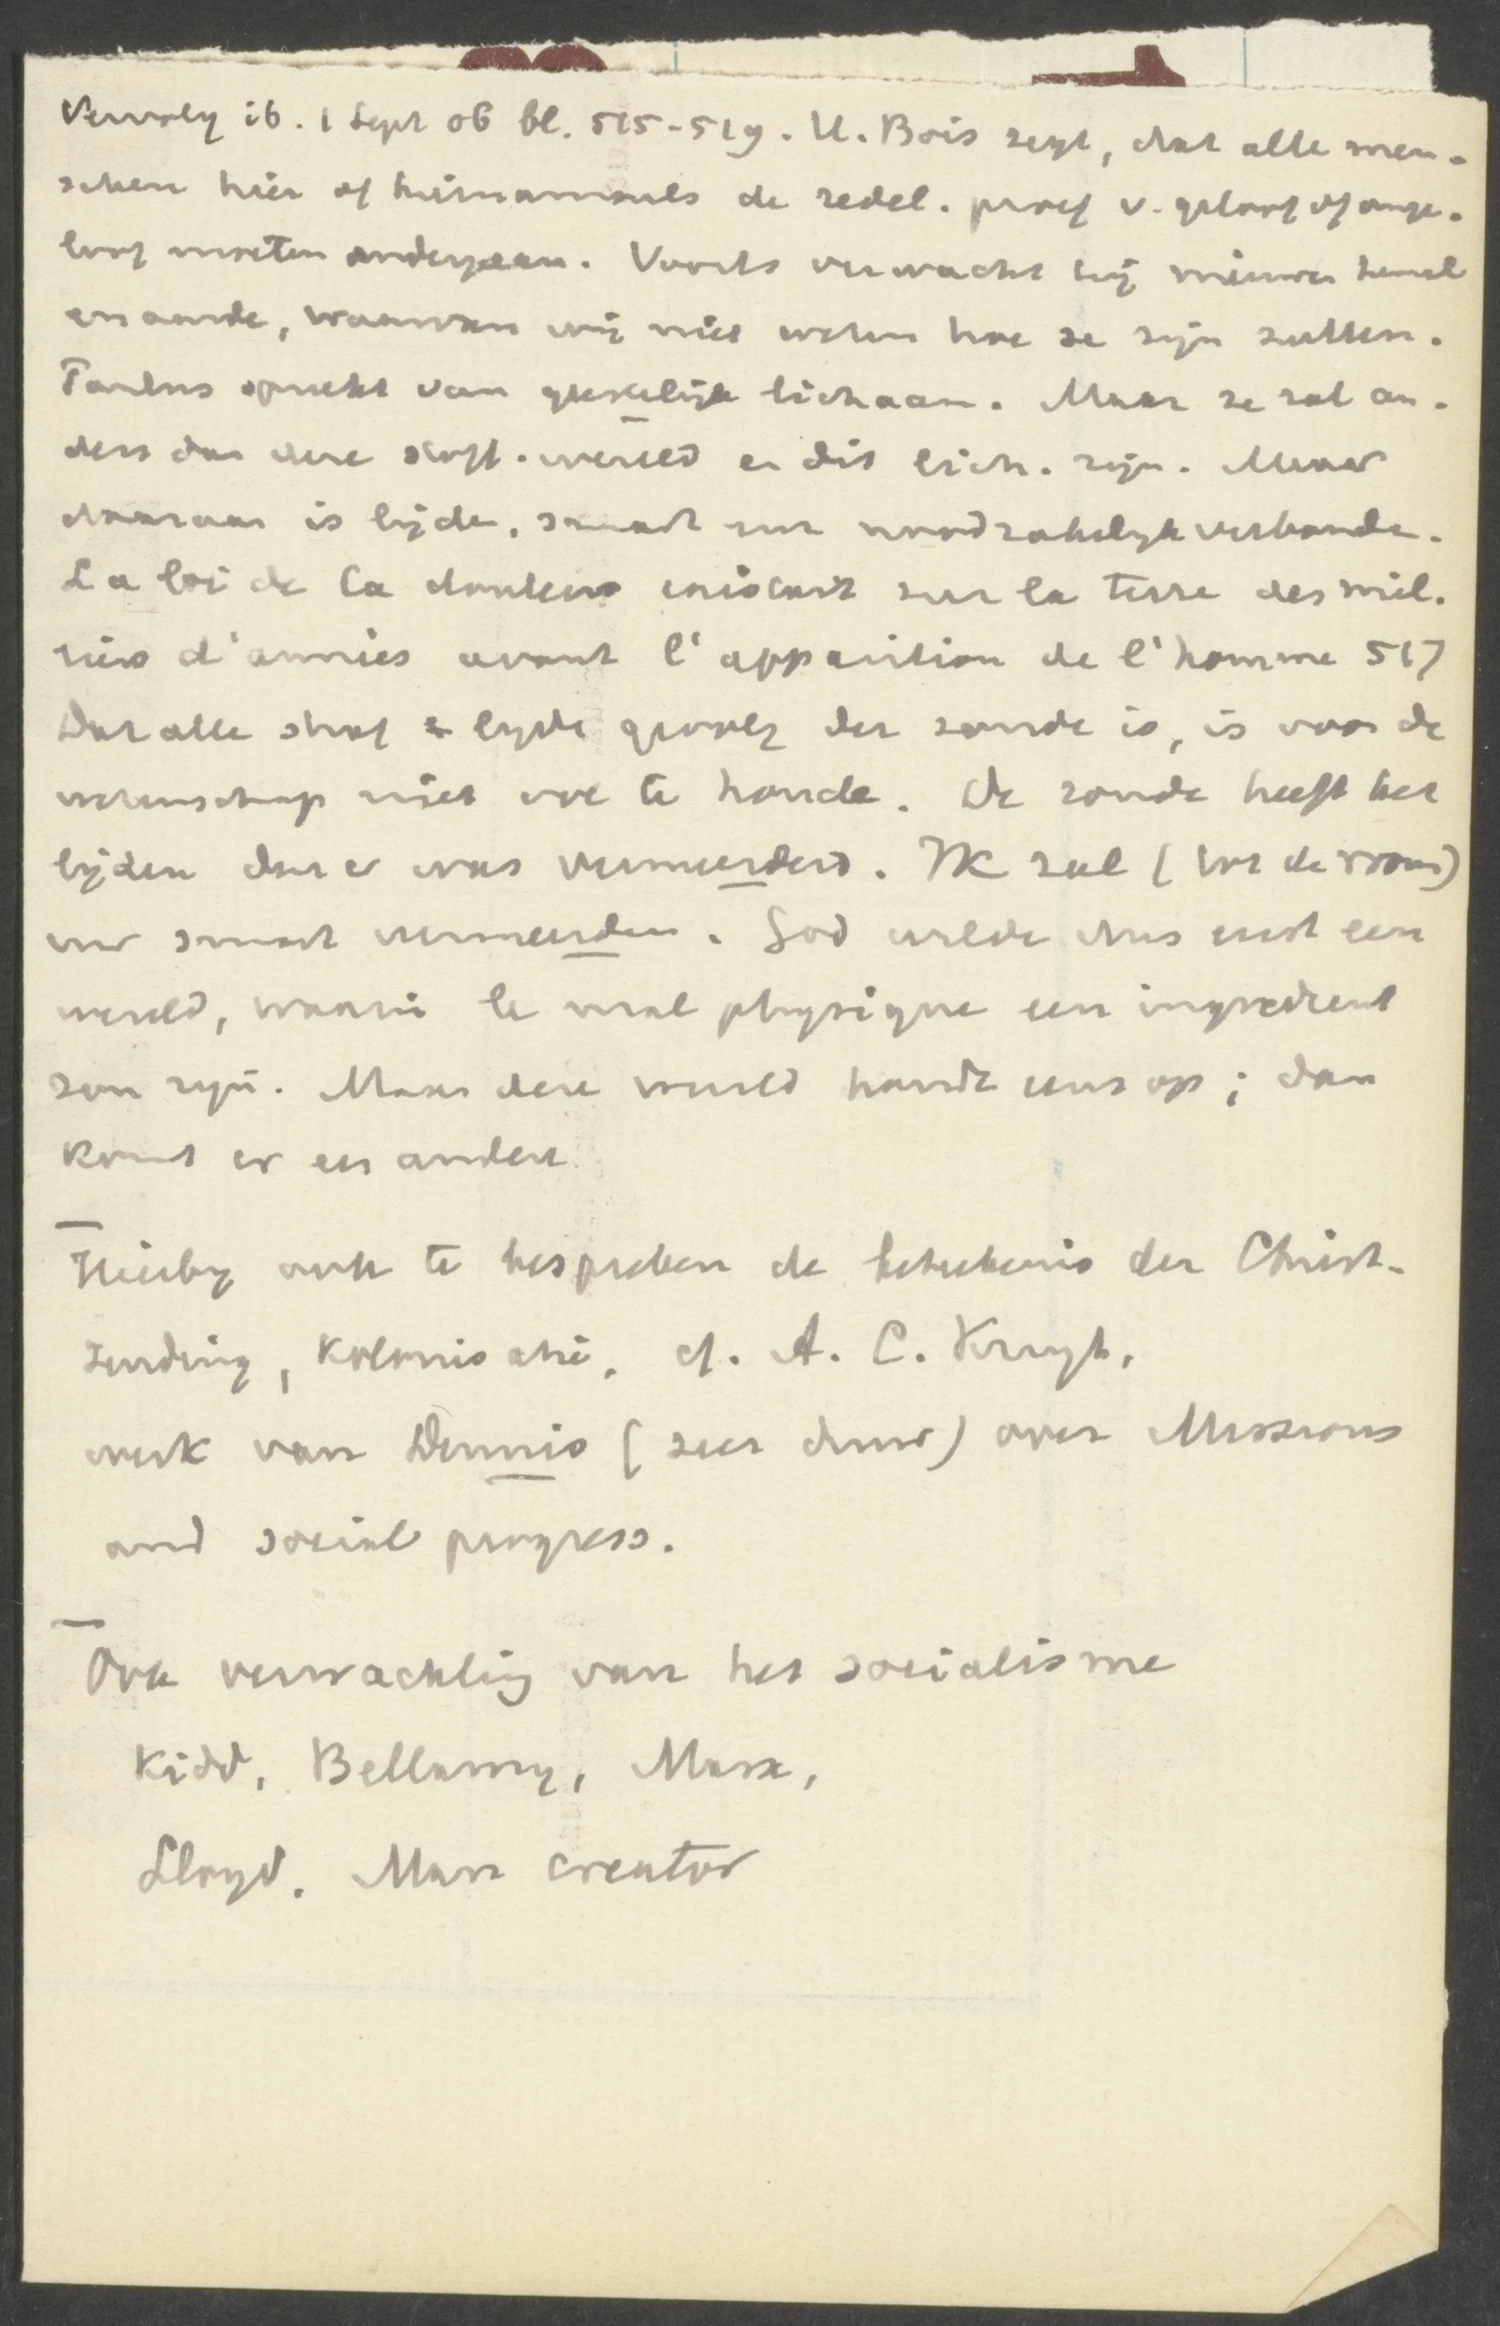 Vervolg ib. 1 Sept 06 bl. 515-519. H. Bois zegt, dat alle men-
schen hier of hiernamaals de zedel. proef v. geloof of onge-
loof moeten ondergaan. Voorts verwacht hij nieuwen hemel
en aarde, waarvan wij niet weten hoe ze zijn zullen.
Paulus spreekt van geestelijk lichaam. Maar ze zal an-
ders dan deze stoff. wereld en dit lich. zijn. Maar
daaraan is lijden, smart enz noodzakelijk verbonden.
La loi de la douleur existait sur la terre des mil-
liers d'années avant l'apparition de l'homme 517
Dat alle straf & lijden gevolg der zonde is, is voor de
wetenschap niet vol te houden. De zonde heeft het
lijden dat er was vermeerderd. Ik zal (tot de vrouw)
uw smart vermeerderen. God wilde dus eerst een
wereld, waarin le mal physique een ingredient
zou zijn. Maar deze wereld houdt eens op; dan
komt er een andere
Hierbij ook te bespreken de beteekenis der Christ.
zending, kolonisatie, cf. A. C. Kruyt,
werk van Dennis (zeer duur) over Missions
and social progress.
Ook verwachting van het socialisme
Kidd, Bellamy, Marx,
Lloyd. Man creator